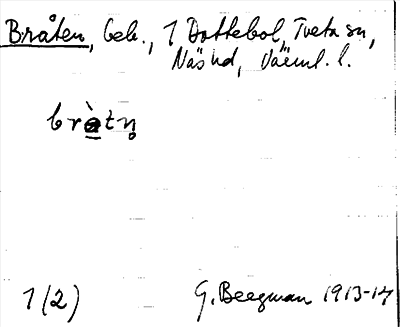 Bråten, Geb., 1 Dottebol, Tveta sn,
Näs hd, Värml. l.
bràtn̥
1(2)
G. Bergman 1913-14